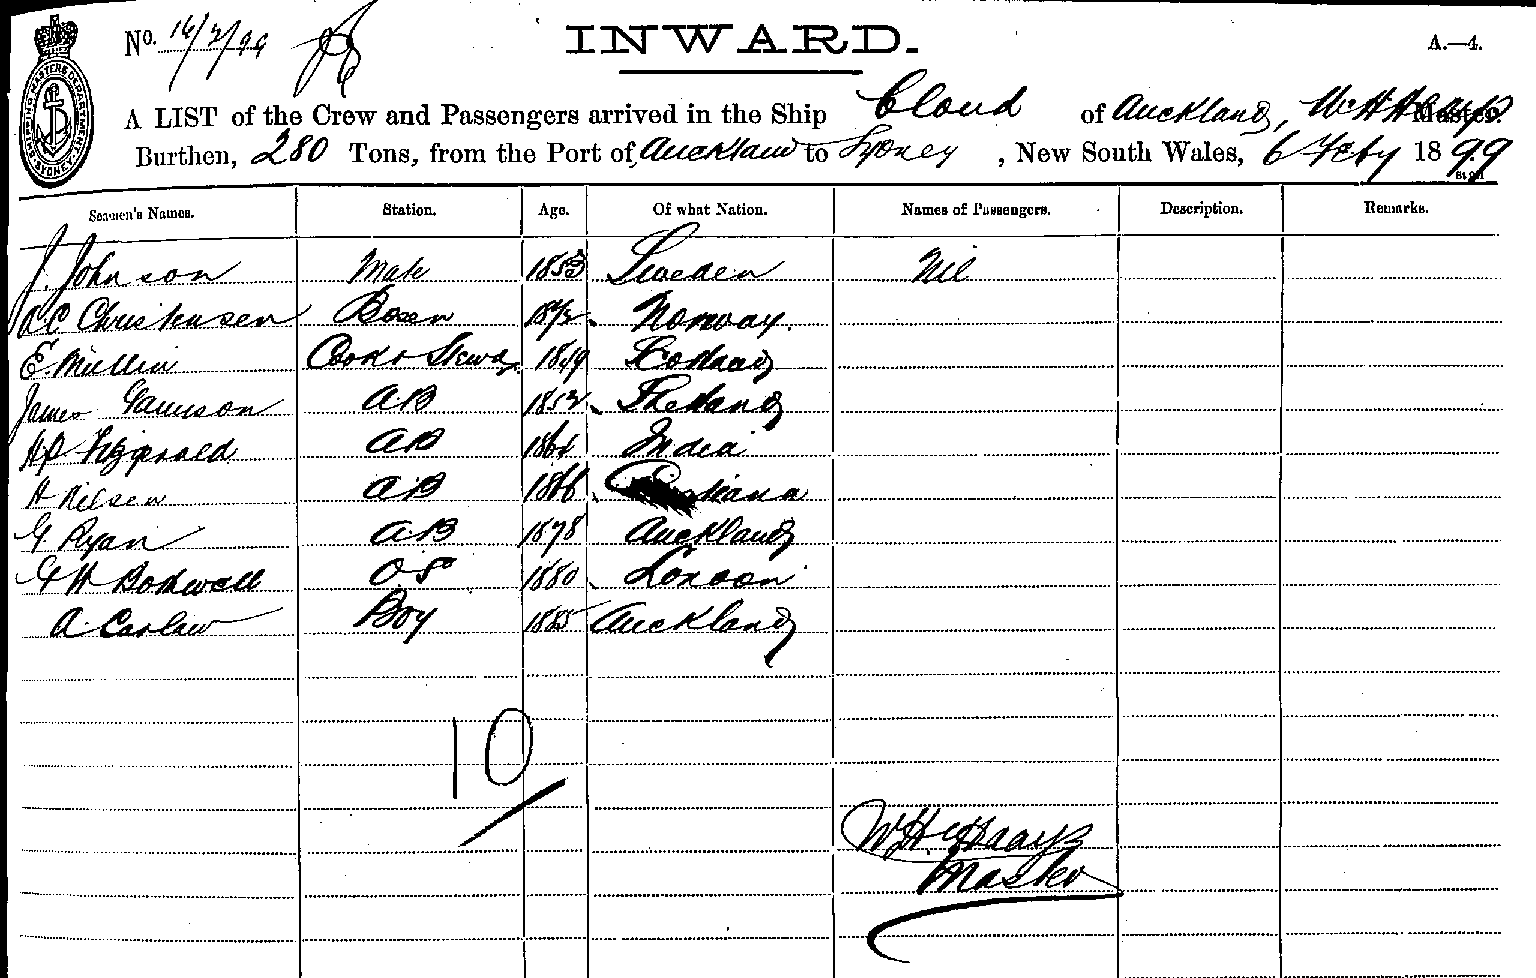 No. 16/2/99
INWARD.
A.—4.
A LIST of the Crew and Passengers arrived in the Ship Cloud of Auckland, W H Master.
Burthen, 280 Tons, from the Port of Auckland to Sydney, New South Wales, 6 Feby 1899
Seamen's Names. Station. Age. Of what Nation. Names of Passengers. Description. Remarks.
J. Johnson Mate 1853 Sweden Nil
A C Christensen Bosen 1872 Norway.
E. Mullin Cook & Stewd 1859 Scotland
James Jamison AB 1852 Shetland
H P Fitzgerald AB India
H Nilsen AB 1866
G. Ryan AB 1878 Auckland
G H Bodwell OS 1880 London
A. Carlaw Boy 1885 Auckland
10
W. H.
Master